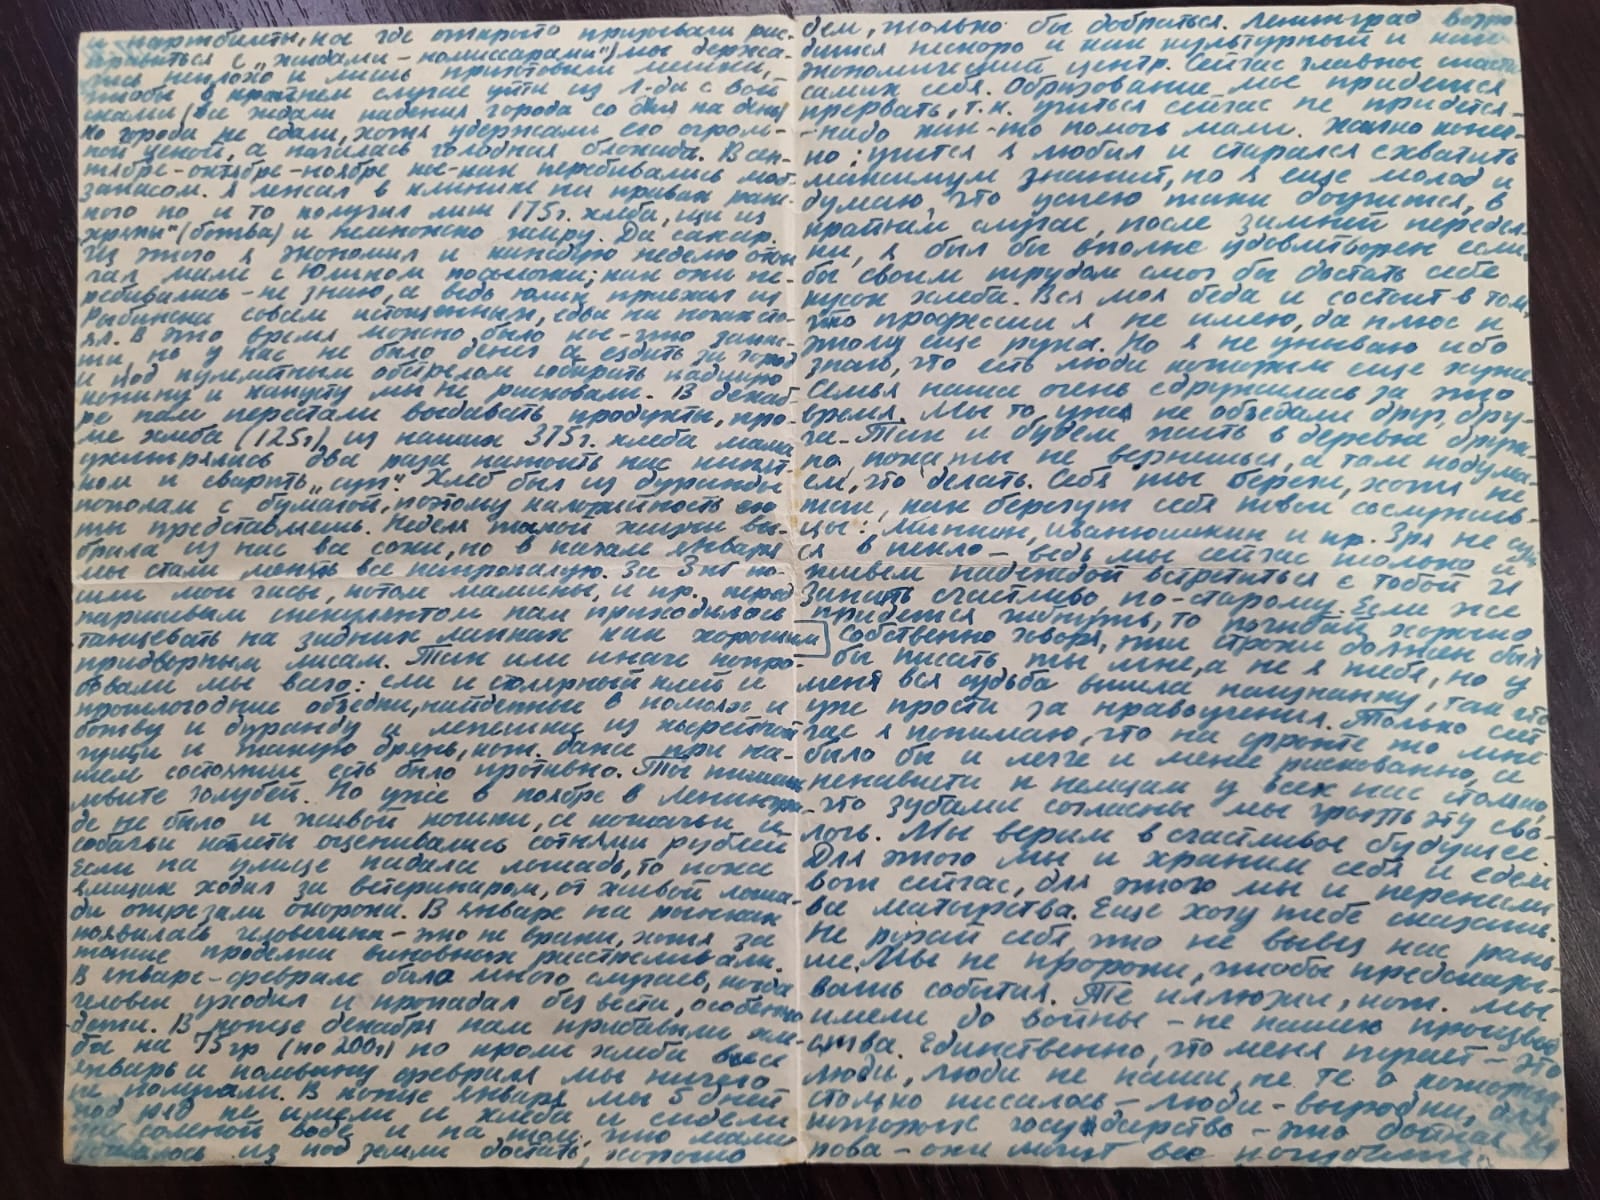 и партбилеты, кое где открыто призывали рас-
правиться с „жидами-комиссарами") мы держа-
лись неплохо и лишь приготовили мешки,
чтобы в крайнем случае уйти из Л-да с вой-
сками, все ждали падения города со дня на день
Но города не сдали, хотя удержали его огром-
ной ценой, а началась голодная блокада. В сен-
тябре-октябре-ноябре кое-как перебивались
запасом. Я лежал в клинике на правах ране-
ного но и то получил лиш 175г. хлеба, щи из
„хряпы" (ботва) и немножко жиру. Да сахар.
Из этого я экономил и каждую неделю
мами с Юликом посылочки; как они пе-
ребивались - не знаю, а ведь Юлик приехал из
Рыбинска совсем истощенным, едва на ногах сто-
ял. В это время можно было кое-что
но у нас не было денег а ездить за город
и под пулеметным обстрелом собирать
конину и капусту мы не рисковали. В декаб-
ре нам перестали выдавать продукты, кро-
ме хлеба (125г) из наших 375г. хлеба мама
ухитрялась два раза напоить нас кипят-
ком и сварить „суп". Хлеб был из дуранды
пополам с бумагой, поэтому калорийность его
ты представляешь. Неделя такой жизни вы-
брала из нас все соки, но в начале января
мы стали менять все напропалую. За 3кг по-
шли мои часы, потом мамины, и пр. перед
паршивым спекулянтом нам приходилось
танцевать на задних лапках как хорошим
придворным лисам. Так или иначе попро-
бовали мы всего: ели и столярный клей и
прошлогодние объедки, найденные в помоях и
ботву и дуранду и лепешки из кофейной
гущи и такую дрянь, кот. даже при на-
шем состоянии есть было противно. Ты пишешь
ловите голубей. Но уже в ноябре в Ленингра-
де не было и живой кошки, а кошачьи и
собачьи котлеты оценивались сотнями рублей
Если на улице падала лошадь, то пока
ямщик ходил за ветеринаром, от живой лоша-
ди отрезали окорока. В январе на рынках
появилась человечина - это не враки, хотя за
такие проделки виновных расстреливали.
В январе-феврале было много случаев, когда
человек уходил и пропадал без вести, особенно
дети. В конце декабря нам прибавили хле-
ба на 75гр (по 200г) но кроме хлеба весь
январь и половину февраля мы ничего
не получали. В конце января мы 5 дней
под ряд не имели и хлеба и сидели
на соленой воде и на том, что маме
удавалось из под земли достать, хорошо
дем, только бы добраться. Ленинград возро-
дится нескоро и как культурный и как
экономический центр. Сейчас главное спасти
самих себя. Образование мое придется
прервать, т.к. учиться сейчас не придется-
-надо как-то помочь маме. Жалко конеч-
но: учится я любил и старался схватить
максимум знаний, но я еще молод и
думаю, что успею таки доучится, в
крайнем случае, после зимней передел-
ки, я был бы вполне удовлетворен если
бы своим трудом смог бы достать себе
кусок хлеба. Вся моя беда и состоит в том,
что профессии я не имею, да плюс к
этому еще рука. Но я не унываю ибо
знаю, что есть люди которым еще хуже.
Семья наша очень сдружилась за это
время. Мы то уж не объедали друг дру-
га. Так и будем жить в деревне друж-
но, пока ты не вернешься, а там подума-
ем, что делать. Себя ты береги, хотя не
так, как берегут себя твои сослужив-
цы: Миткин, Иванюшкин и пр. Зря не суй-
ся в пекло - ведь мы сейчас только и
живем надеждой встретиться с тобой и
зажить счастливо по-старому. Если же
придется гибнуть, то погибай хорошо.
Собственно говоря, эти строки должен был
бы писать ты мне, а не я тебе, но у
меня вся судьба вышла наизнанку, так что
уже прости за нравоучения. Только сей-
час я понимаю, что на фронте то мне
было бы и легче и менее рискованно, а
ненависти к немцам у всех нас столько,
-что зубами согласны мы грызть эту сво-
лочь. Мы верим в счастливое будущее.
Для этого мы и храним себя и едем
вот сейчас, для этого мы и перенесли
все мытарства. Еще хочу тебе сказать.
Не ругай себя, что не вывез нас рань-
ше. Мы не пророки, чтобы предсказы-
вать события. Те иллюзии, кот. мы
имели до войны - не нашего производ-
ства. Единственно, что меня пугает - это
люди, люди не наши, не те о которых
столько писалось - люди-выродки, для
которых государство - это дойная ко-
рова - они могут все погубить.